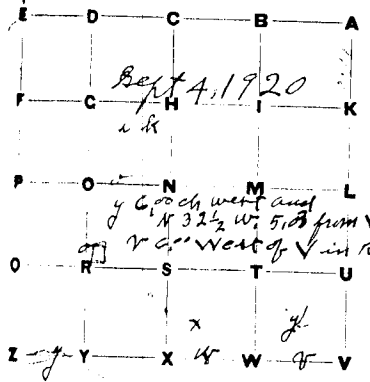 E D C B A
Sept 4, 1920
F G H I K
i k
P O N M L
y 6.00 ch west and
N 32½ W. 5.03 from V
v 6.00 West of V in
Q R S T U
x y
Z y Y X W v V